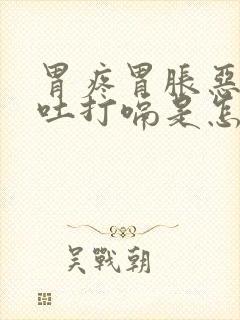 胃疼胃脹惡
吐打嗝是怎
吴戰朝